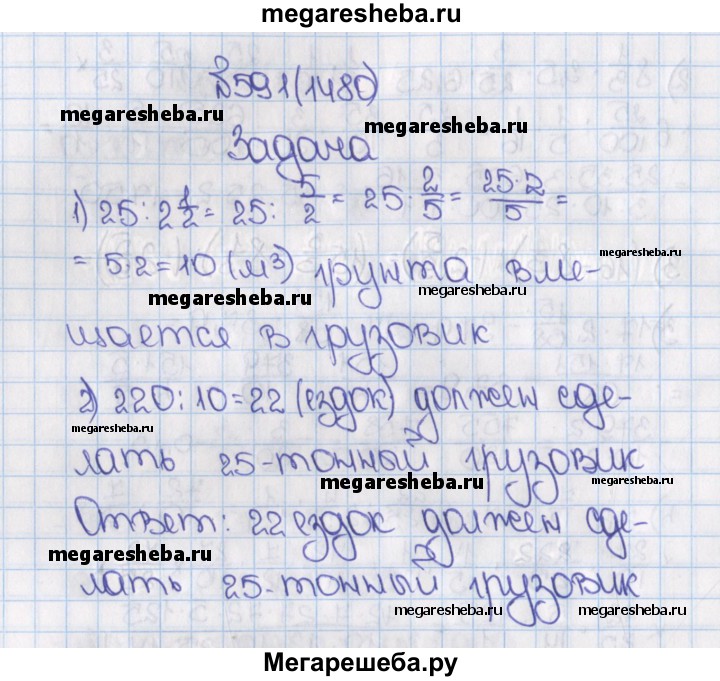 megaresheba.ru
№591(1480)
megaresheba.ru
megaresheba.ru
Задача
1) 25 : 2 1/2 = 25 : 5/2 = 25 · 2/5 = 25·2/5 =
megaresheba.ru
= 5·2 = 10 (м3) грунта вме-
megaresheba.ru
megaresheba.ru
щается в грузовик
2) 220 : 10 = 22 (ездок) должен сде-
megaresheba.ru
лать 25-тонный грузовик
megaresheba.ru
megaresheba.ru
Ответ: 22 ездок должен сде-
megaresheba.ru
лать 25-тонный грузовик
megaresheba.ru
megaresheba.ru
Мегарешеба.ру